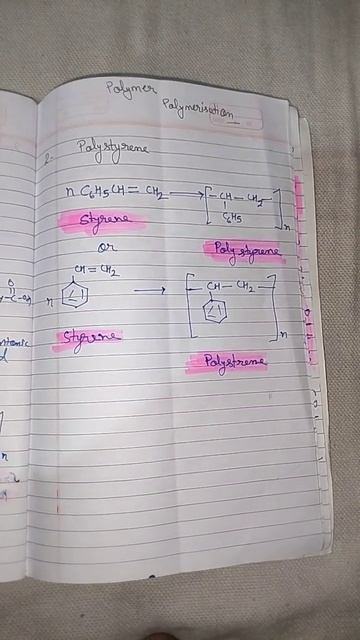 Polymer
Polymerisation
2. Polystyrene
n C6H5CH = CH2 → [ -CH - CH2- ]n
C6H5
Styrene
Polystyrene
or
CH = CH2
n → [ -CH - CH2- ]n
Styrene
Polystrene